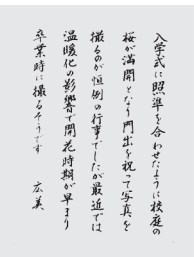 入学式に照準を合わせたように校庭の
桜が満開となり門出を祝って写真を
撮るのが恒例の行事でしたが最近では
温暖化の影響で開花時期が早まり
卒業時に撮るそうです
広美